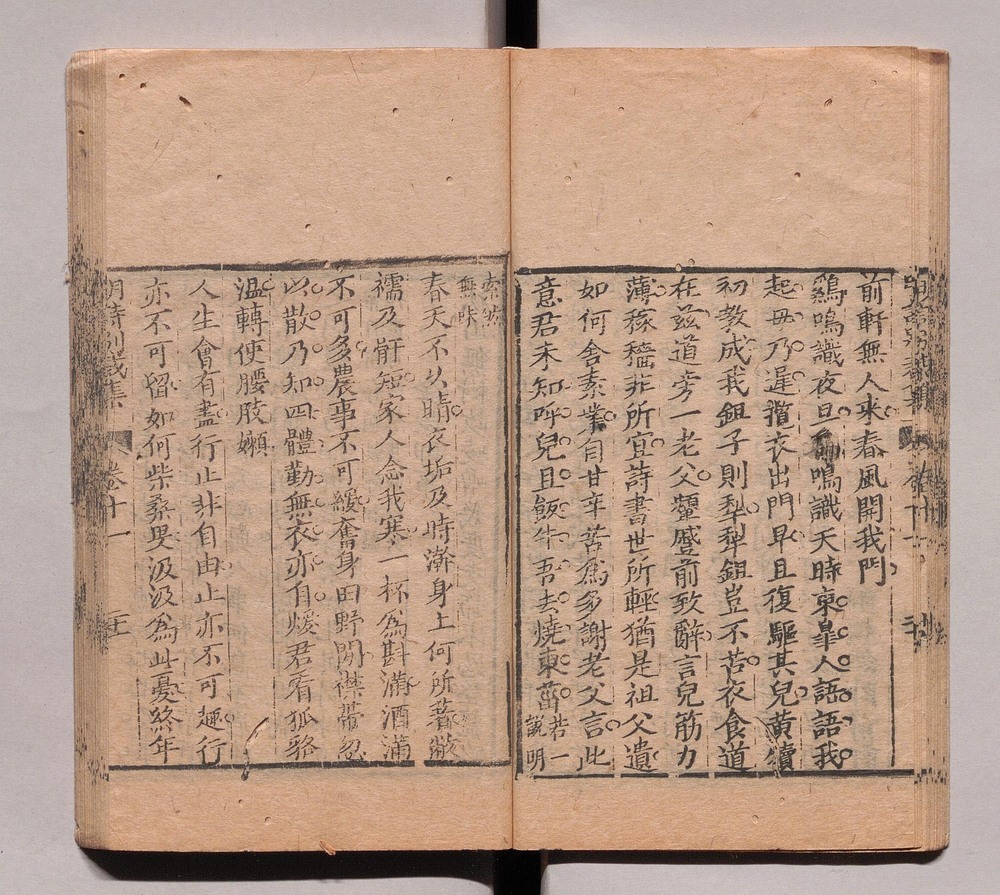 前軒無人來春風開我門
鷄鳴識夜旦鳴識天時東臯人語語我
起毋乃遲攬衣出門早且復驅其兒黄犢
初教成我鉏子則犁犁鉏豈不苦衣食道
在兹道旁一老父顰蹙前致辭言兒筋力
薄稼穡非所宜詩書世所輕猶是祖父遺
如何舍素業自甘辛苦爲多謝老父言此
意君未知呼兒且飯牛吾去燒東菑若一
說明
索然
無味
春天不久晴衣垢及時澣身上何所著敝
襦及骭短家人念我寒一杯爲斟滿酒滿
不可多農事不可緩奮身田野間襟帶忽
以散乃知四體勤無衣亦自煖君看狐貉
溫轉使腰肢嬾
人生會有盡行止非自由止亦不可趣行
亦不可留如何柴桑叟汲汲爲此憂終年
明詩別裁集
卷十一